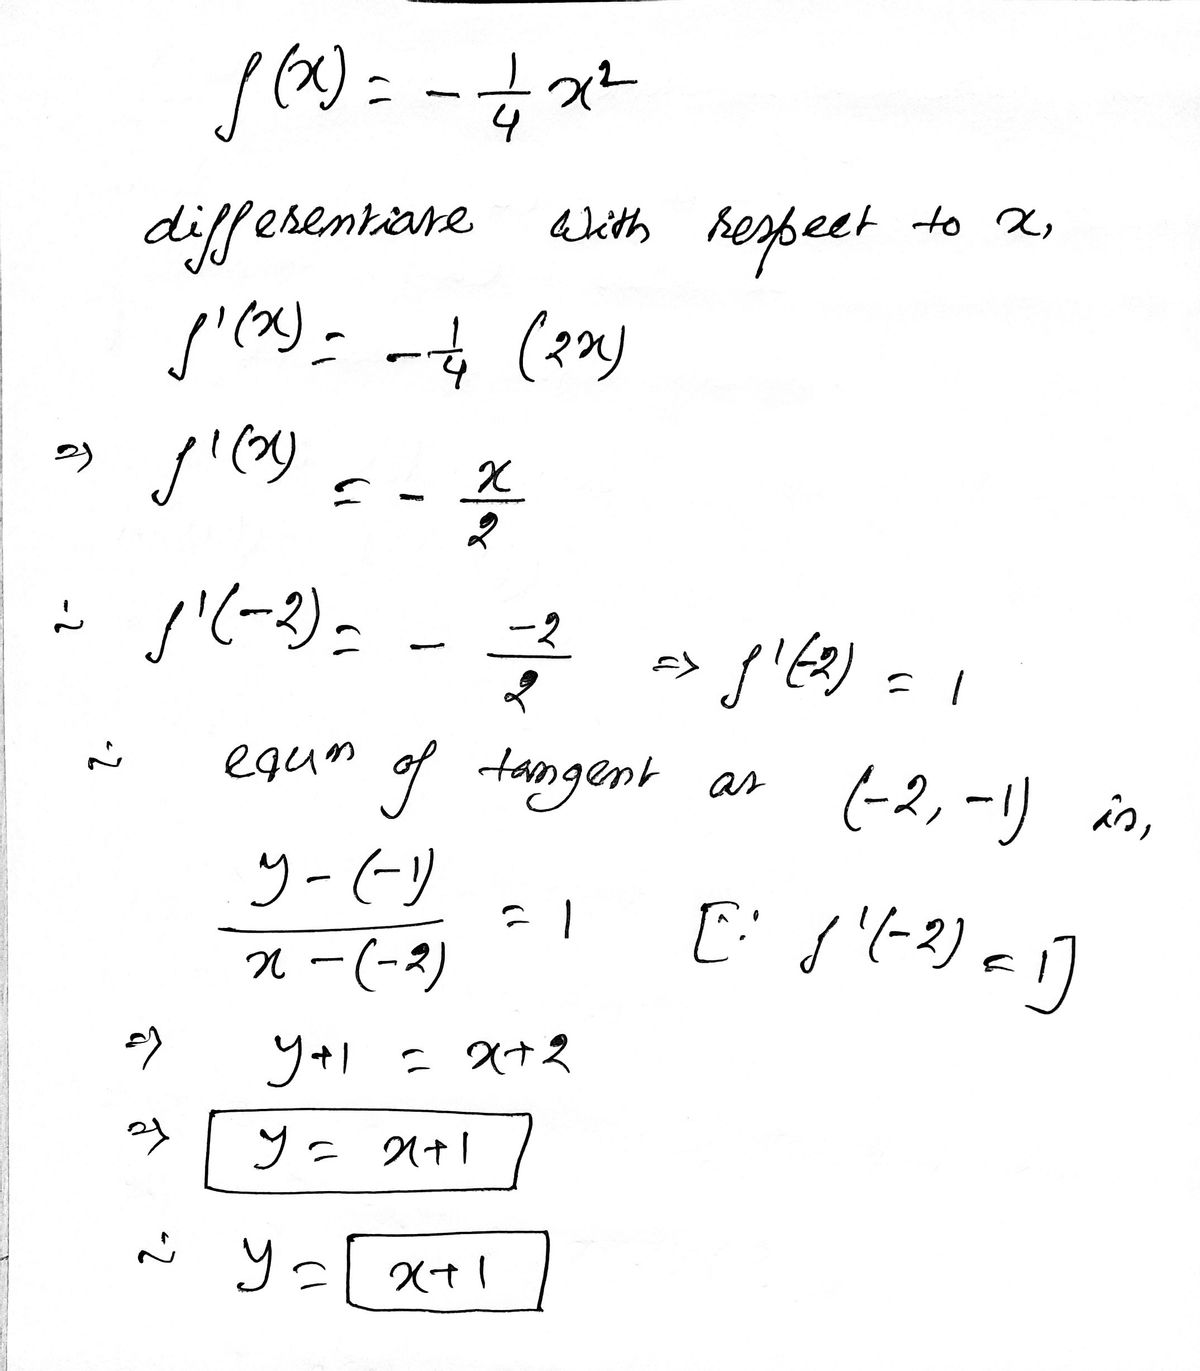 f(x) = - 1/4 x²
differentiate with respect to x,
f'(x) = - 1/4 (2x)
⇒ f'(x) = - x/2
∴ f'(-2) = - -2/2 ⇒ f'(-2) = 1
∴ equn of tangent at (-2, -1) is,
y-(-1)/x-(-2) = 1 [∵ f'(-2) = 1]
⇒ y+1 = x+2
⇒ y = x+1
∴ y = x+1